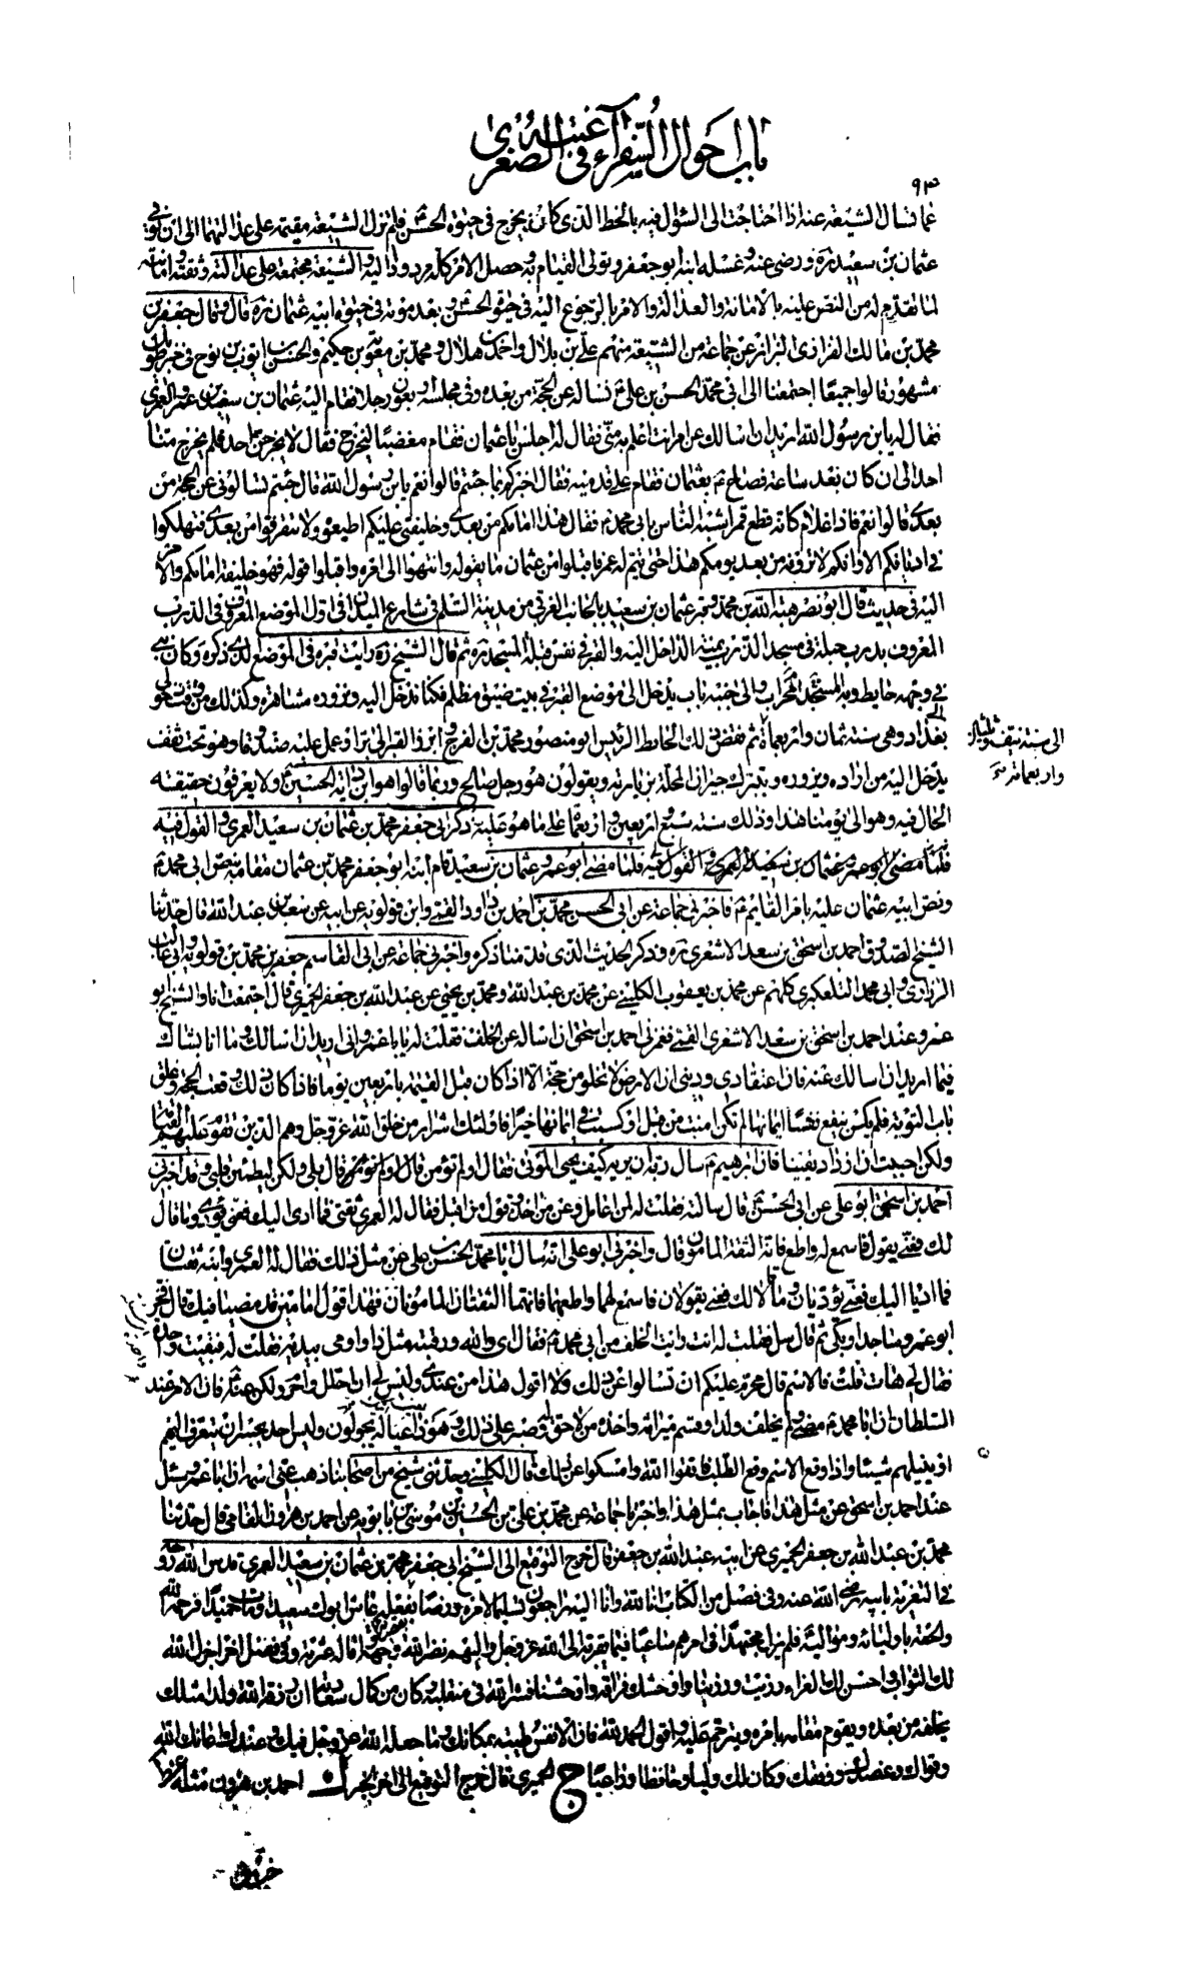 باب احوال السفراء في غيبته الصغرى
٩٣
عما تسال الشيعة عنه اذا احتاجت الى السؤال فيه بالخط الذى كان يخرج في حيوة الحسن فلم تزل الشيعة مقيمة على عدالتهما الى ان توفى
عثمان بن سعيد ره ورضى عنه وغسله ابنه ابو جعفر وتولى القيام به وحصل الامر كله مردودا اليه والشيعة مجتمعة على عدالته وثقته وامانته
لما تقدم له من النص عليه بالامانة والعدالة والامر بالرجوع اليه في حيوة الحسن وبعد موته في حيوة ابيه عثمان ره قال وقال جعفر بن
محمد بن مالك الفزارى البزاز عن جماعة من الشيعة منهم على بن بلال واحمد بن هلال ومحمد بن معوية بن حكيم والحسن بن ايوب بن نوح في خبر طويل
مشهور قالوا جميعا اجتمعنا الى ابى محمد الحسن بن على ع نساله عن الحجة من بعده وفى مجلسه اربعون رجلا فقام اليه عثمان بن سعيد بن عمرو العمرى
فقال له يا بن رسول الله اريد ان اسالك عن امر انت اعلم به منى فقال له اجلس يا عثمان فقام مغضبا ليخرج فقال لا يخرجن احد فلم يخرج منا
احد الى ان كان بعد ساعة فصاح ع بعثمان فقام على قدميه فقال اخبركم بما جئتم قالوا نعم يا بن رسول الله قال جئتم تسالونى عن الحجة من
بعدى قالوا نعم فاذا غلام كانه قطع قمر اشبه الناس بابى محمد ع فقال هذا امامكم من بعدى وخليفتى عليكم اطيعوه ولا تتفرقوا من بعدى فتهلكوا
في اديانكم الا وانكم لا ترونه من بعد يومكم هذا حتى يتم له عمر فاقبلوا من عثمان ما يقوله وانتهوا الى امره واقبلوا قوله فهو خليفة امامكم والامر
اليه في حديث قال ابو نصر هبة الله بن محمد وقبر عثمان بن سعيد بالجانب الغربى من مدينة السلم في شارع الميدان في اول الموضع المعروف في الدرب
المعروف بدرب جبلة في مسجد الدرب يمنة الداخل اليه والقبر في نفس قبلة المسجد ره ثم قال الشيخ ره رايت قبره في الموضع الذى ذكره وكان بنى
في وجهه حايط وبه المسجد المحراب والى جنبه باب يدخل الى موضع القبر في بيت ضيق مظلم فكنا ندخل اليه ونزوره مشاهرة وكذلك من وقت دخولى
الى بغداد وهى سنة ثمان واربعمأة ثم نقض ذلك الحايط الرئيس ابو منصور محمد بن الفرج وابرز القبر الى برا وعمل عليه صندوقا وهو تحت سقف
يدخل اليه من اراده ويزوره ويتبرك جيران المحلة بزيارته ويقولون هو رجل صالح وربما قالوا هو ابن داية الحسين ع ولا يعرفون حقيقة
الحال فيه وهو الى يومنا هذا وذلك سنة سبع اربعين واربعمأة على ما هو عليه ذكر ابى جعفر محمد بن عثمان بن سعيد العمرى والقول فيه
فلما مضى ابو عمرو عثمان بن سعيد العمرى والقول فيه فلما مضى ابو عمرو عثمان بن سعيد قام ابنه ابو جعفر محمد بن عثمان مقامه بنص ابى محمد ع
ونص ابيه عثمان عليه بامر القايم ع فاخبرنى جماعة عن ابى الحسن محمد بن احمد بن داود القمى وابن قولويه عن ابيه عن سعد بن عبد الله قال حدثنا
الشيخ الصدوق احمد بن اسحق بن سعد الاشعرى ره وذكر الحديث الذى قدمنا ذكره واخبرنى جماعة عن ابى القاسم جعفر بن محمد بن قولويه وابى غالب
الزرارى وابى محمد التلعكبرى كلهم عن محمد بن يعقوب الكلينى عن محمد بن عبد الله ومحمد بن يحيى عن عبد الله بن جعفر الحميرى قال اجتمعت انا والشيخ ابو
عمرو عند احمد بن اسحق بن سعد الاشعرى القمى فغمزنى احمد بن اسحق ان اساله عن الخلف فقلت له يا با عمرو انى اريد ان اسالك وما انا بشاك
فيما اريد ان اسالك عنه فان اعتقادى ودينى ان الارض لا تخلو من حجة الا اذا كان قبل القيمة باربعين يوما فاذا كان ذلك وقعت الحجة وغلق
باب التوبة فلم يكن ينفع نفسا ايمانها لم تكن امنت من قبل او كسبت في ايمانها خيرا فاولئك اشرار من خلق الله عز وجل وهم الذين تقوم عليهم القيمة
ولكن احببت ان ازداد يقينا فان ابرهيم ع سال ربه ان يريه كيف يحيى الموتى فقال اولم تؤمن قال بلى ولكن ليطمئن قلبى وقد اخبرنى
احمد بن اسحق ابو على عن ابى الحسن ع قال سالته فقلت له لمن اعامل وعن من اخذ وقول من اقبل فقال له العمرى ثقتى فما ادى اليك فعنى يؤدى وما قال
لك فعنى يقول فاسمع له واطع فانه الثقة المامون قال واخبرنى ابو على انه سال ابا محمد الحسن بن على عن مثل ذلك فقال له العمرى وابنه ثقتان
فما اديا اليك فعنى يؤديان وما قالا لك فعنى يقولان فاسمع لهما واطعهما فانهما الثقتان المامونان فهذا قول امامين قد مضيا فيك قال فخر
ابو عمرو ساجدا وبكى ثم قال سل فقلت له انت رايت الخلف من ابى محمد ع فقال اى والله ورقبته مثل ذا واومى بيديه فقلت له فبقيت واحدة
فقال لى هات قلت فالاسم قال محرم عليكم ان تسالوا عن ذلك ولا اقول هذا من عندى وليس لى ان احلل واحرم ولكن عنه ع فان الامر عند
السلطان ان ابا محمد ع مضى ولم يخلف ولدا وقسم ميراثه واخذه من لا حق له وصبر على ذلك وهو ذا عياله يجولون وليس احد يجسر ان يتعرف اليهم
او ينيلهم شيئا واذا وقع الاسم وقع الطلب فاتقوا الله وامسكوا عن ذلك قال الكلينى وحدثنى شيخ من اصحابنا ذهب عنى اسمه ان ابا عمرو سئل
عند احمد بن اسحق عن مثل هذا فاجاب بمثل هذا واخبرنا جماعة عن محمد بن على بن الحسين بن موسى بن بابويه عن احمد بن هرون الفامى قال حدثنا
محمد بن عبد الله بن جعفر الحميرى عن ابيه عبد الله بن جعفر قال خرج التوقيع الى الشيخ ابى جعفر محمد بن عثمان بن سعيد العمرى قدس الله روحه
في التعزية بابيه رضى الله عنه وفى فصل من الكتاب انا لله وانا اليه راجعون تسليما لامره ورضا بفعله عاش ابوك سعيدا ومات حميدا فرحمه الله
والحقه باوليائه ومواليه فلم يزل مجتهدا في امرهم ساعيا فيما يقربه الى الله عز وجل واليهم نضر الله وجهه واقاله عثرته وفى فصل اخر اجزل الله
لك الثواب واحسن لك العزاء رزيت ورزينا واوحشك فراقه واوحشنا فسره الله في منقلبه كان من كمال سعادته ان رزقه الله ولدا مثلك
يخلفه من بعده ويقوم مقامه بامره ويترحم عليه واقول الحمد لله فان الانفس طيبة بمكانك وما جعله الله عز وجل فيك وعندك اعانك الله
وقواك وعضدك ووفقك وكان لك وليا وحافظا وراعيا ج الحميرى قال خرج التوقيع الى اخر الخبر ك احمد بن هرون مثله غط
الى سنة نيف وثلثين
واربعمائة